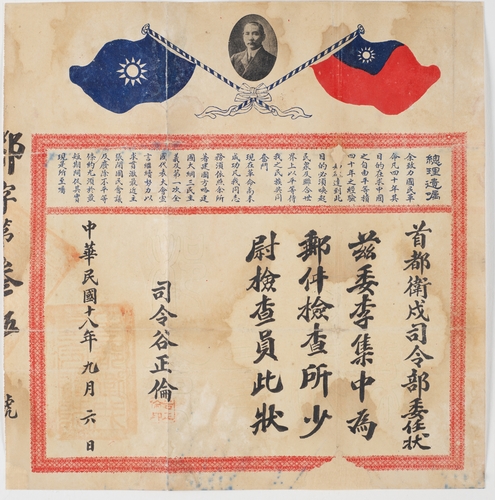 總理遺囑
余致力國民革
命凡四十年其
目的在求中國
之自由平等積
四十年之經驗
深知欲達到此
目的必須喚起
民眾及聯合世
界上以平等待
我之民族共同
奮鬥
現在革命尚未
成功凡我同志
務須依照余所
著建國方略建
國大綱三民主
義及第一次全
國代表大會宣
言繼續努力以
求貫澈最近主
張開國民會議
及廢除不平等
條約尤須於最
短期間促其實
現是所至囑
首都衛戍司令部委任狀
茲委李集中為
郵件檢查所少
尉檢查員此狀
司令谷正倫
中華民國十八年九月六日
郵字第叁伍號